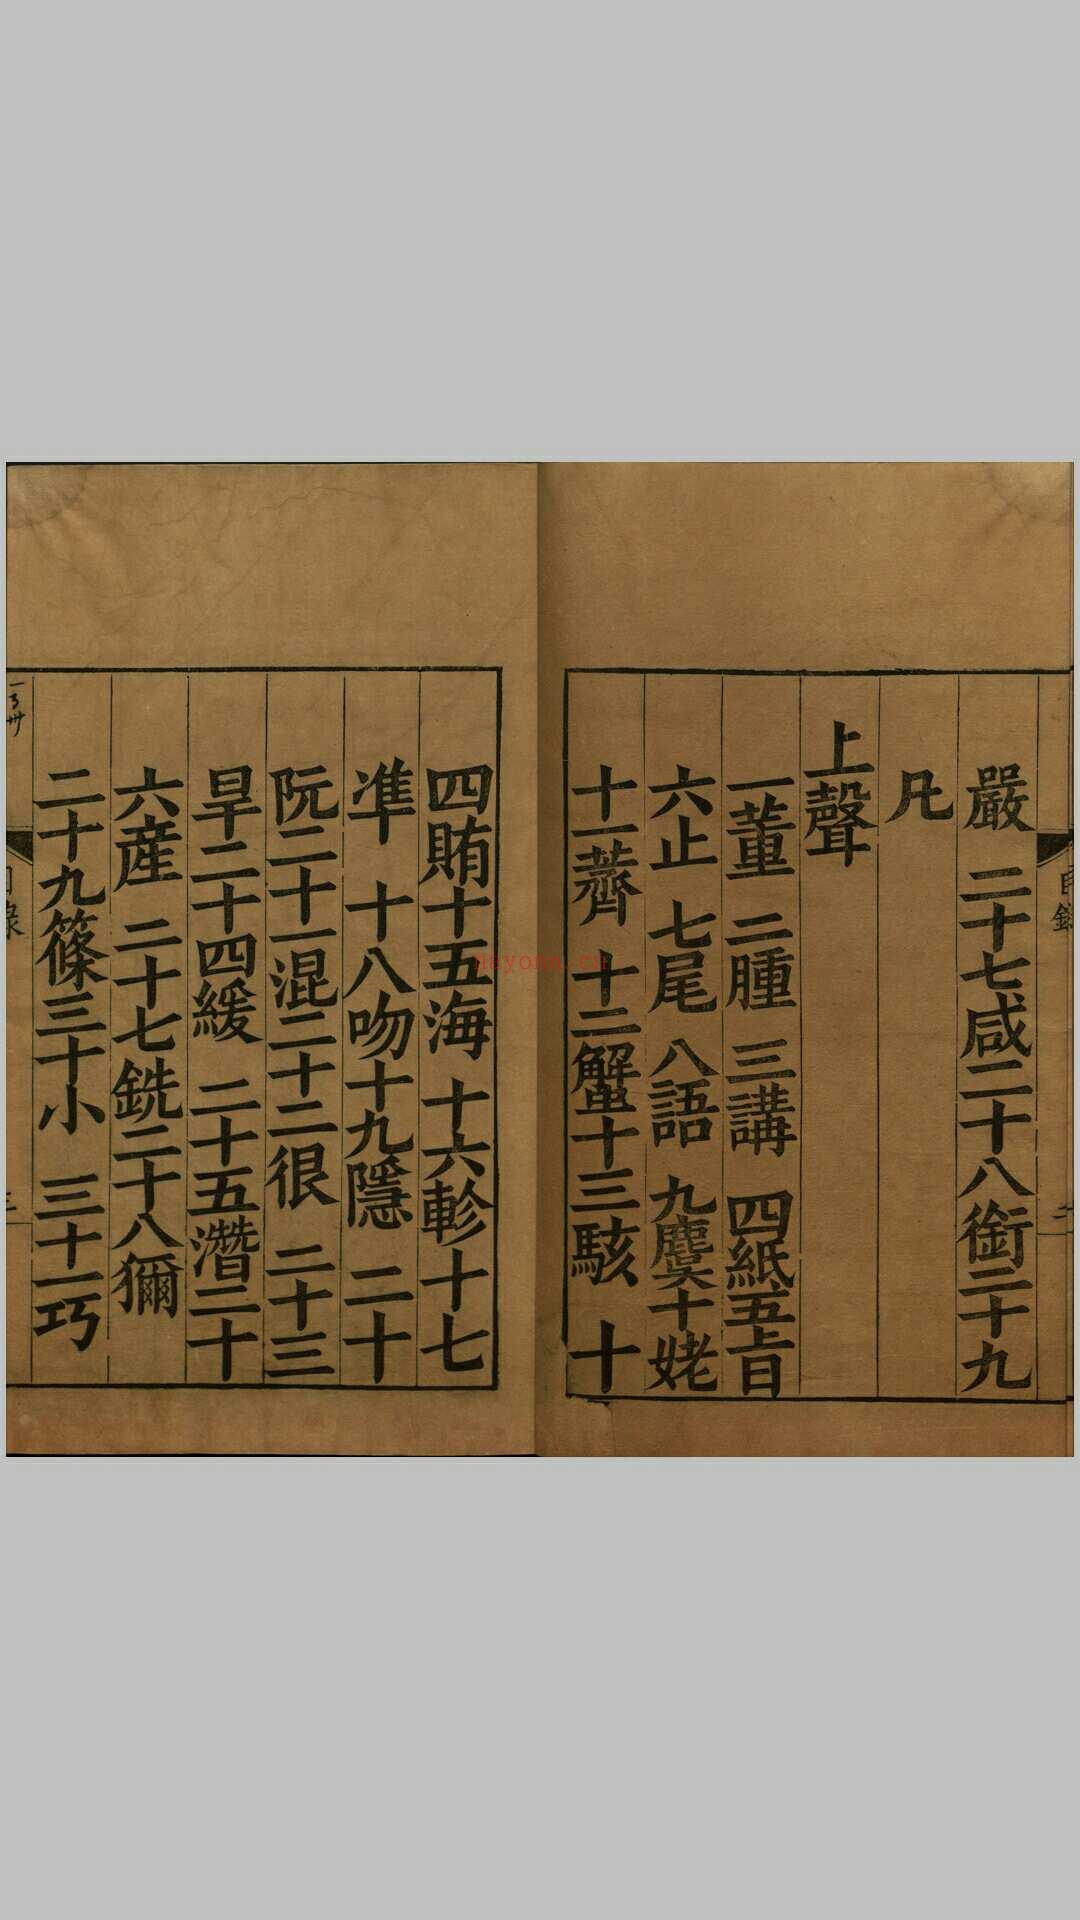 嚴 二十七咸二十八銜二十九
凡
上聲
一董 二腫 三講 四紙五旨
六止 七尾 八語 九麌十姥
十一薺 十二蟹十三駭 十
四賄十五海 十六軫十七
準 十八吻十九隱 二十
阮二十一混二十二很 二十三
旱二十四緩 二十五潸二十
六産 二十七銑二十八獮
二十九篠三十小 三十一巧
目錄
二
目錄
三
nayona.cn